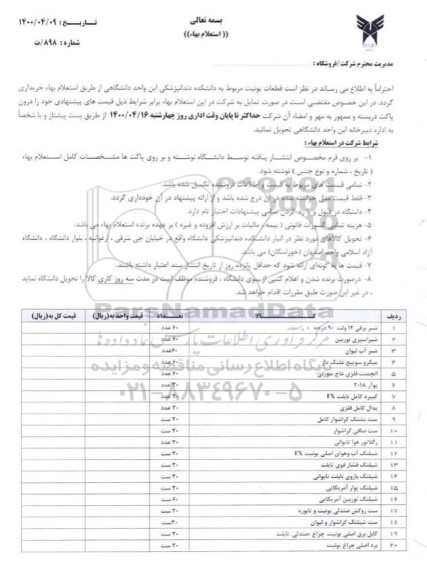 بسمه تعالی
(( استعلام بهاء))
تـاریـخ : ۱۴۰۰/۰۴/۰۹
شماره : ۸۹۸/ت
مدیریت محترم شرکت/فروشگاه :
احتراماً به اطلاع می رساند در نظر است قطعات یونیت مربوط به دانشکده دندانپزشکی این واحد دانشگاهی از طریق استعلام بهاء خریداری
گردد. در این خصوص مقتضی است در صورت تمایل به شرکت در این استعلام بهاء برابر شرایط ذیل قیمت های پیشنهادی خود را درون
پاکت دربسته و ممهور به مهر و امضاء آن شرکت حداکثر تا پایان وقت اداری روز چهارشنبه ۱۴۰۰/۰۴/۱۶ از طریق پست پیشتاز و یا شخصاً
به اداره دبیرخانه این واحد دانشگاهی تحویل نمائید.
شرایط شرکت در استعلام بهاء:
۱- بر روی فرم مخصوص انتشار یافته توسط دانشگاه نوشته و بر روی پاکت ها مشخصات کامل استعلام بهاء
( تاریخ ، شماره و نوع جنس ) نوشته شود.
۲- تمامی قسمت های مربوط به قیمت و اطلاعات فروشنده تکمیل شده باشد.
۳- فقط قیمت محل خواسته شده در آن درج شده باشد و از ارائه پیشنهاد در آن خودداری گردد.
۴- دانشگاه در قبول و یا رد کردن تمامی پیشنهادات اختیار تام دارد.
۵- هزینه تمامی کسورات قانونی ( بیمه ، مالیات بر ارزش افزوده و غیره ) بر عهده برنده استعلام بهاء می باشد.
۶- تحویل کالاهای مورد نظر در انبار دانشکده دندانپزشکی دانشگاه واقع در خیابان جی شرقی ، ارغوانیه ، بلوار دانشگاه ، دانشگاه
آزاد اسلامی واحد اصفهان (خوراسگان) می باشد.
۷- قیمت ها به گونه‌ای ارائه شود که حداقل پانزده روز از تاریخ انتشار سند اعتبار داشته باشند.
۸- درصورت برنده شدن و اعلام کتبی از سوی دانشگاه ، فروشنده موظف است در مدت سه روز کاری کالا را تحویل دانشگاه نماید
، در غیر این صورت طبق مقررات اقدام خواهد شد.
ParsNamadData
پایگاه اطلاع رسانی مناقصه و مزایده
۰۲۱-۸۸۳۴۹۶۷۰-۵
ردیف کالا تعداد قیمت واحد به(ریال) قیمت کل به(ریال)
۱ شیر برقی ۱۲ ولت ۹۰ درجه ۶۰ عدد
۲ شیراسپری توربین ۶۰ عدد
۳ شیر آب لیوان ۶۰ عدد
۴ میکرو سوییچ تشتک دار
۵ اتچمنت فلزی
۶ پوآر ۲۰۱۸ ۳۰ عدد
۷ کیبرد کامل تابلت FX
۸ پدال کامل فلزی ۳۰ عدد
۹ ست تشتک کراشوار کامل ۳۰ ست
۱۰ ست صافی کراشوار ۳۰ ست
۱۱ رگلاتور هوا تایوانی ۳۰ عدد
۱۲ شیلنگ آب وهوای اصلی یونیت FX ۳۰ ست
۱۳ شیلنگ فشار قوی تابلت ۳۰ ست
۱۴ شیلنگ بازوی تابلت تایوانی ۳۰ ست
۱۵ شیلنگ پوار آمریکایی ۳۰ ست
۱۶ شیلنگ توربین آمریکایی ۶۰ ست
۱۷ ست روکش صندلی یونیت و تابوره ۳۰ ست
۱۸ ست شیلنگ کراشوار و لیوان ۳۰ ست
۱۹ کابل برق اصلی یونیت، چراغ، صندلی، تابلت ۳۰ ست
۲۰ برد اصلی چراغ یونیت ۳۰ ست